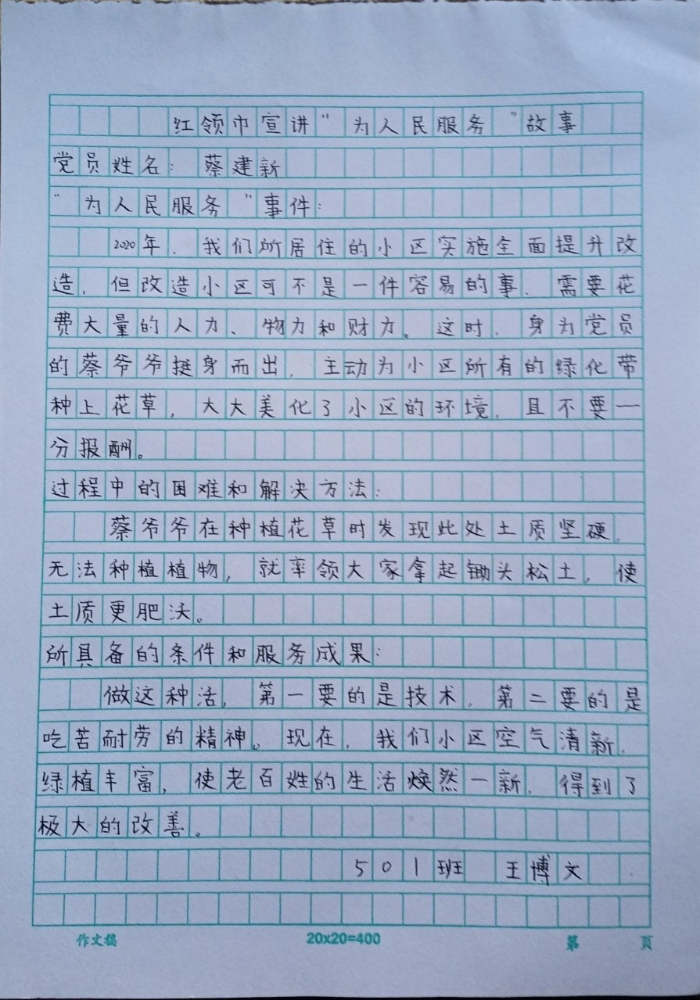 红领巾宣讲“为人民服务”故事
党员姓名：蔡建新
“为人民服务”事件：
2020年，我们所居住的小区实施全面提升改
造，但改造小区可不是一件容易的事，需要花
费大量的人力、物力和财力。这时，身为党员
的蔡爷爷挺身而出，主动为小区所有的绿化带
种上花草，大大美化了小区的环境，且不要一
分报酬。
过程中的困难和解决方法：
蔡爷爷在种植花草时发现此处土质坚硬，
无法种植植物，就率领大家拿起锄头松土，使
土质更肥沃。
所具备的条件和服务成果：
做这种活，第一要的是技术，第二要的是
吃苦耐劳的精神。现在，我们小区空气清新，
绿植丰富，使老百姓的生活焕然一新，得到了
极大的改善。
501班 王博文
作文稿 20x20=400 第 页